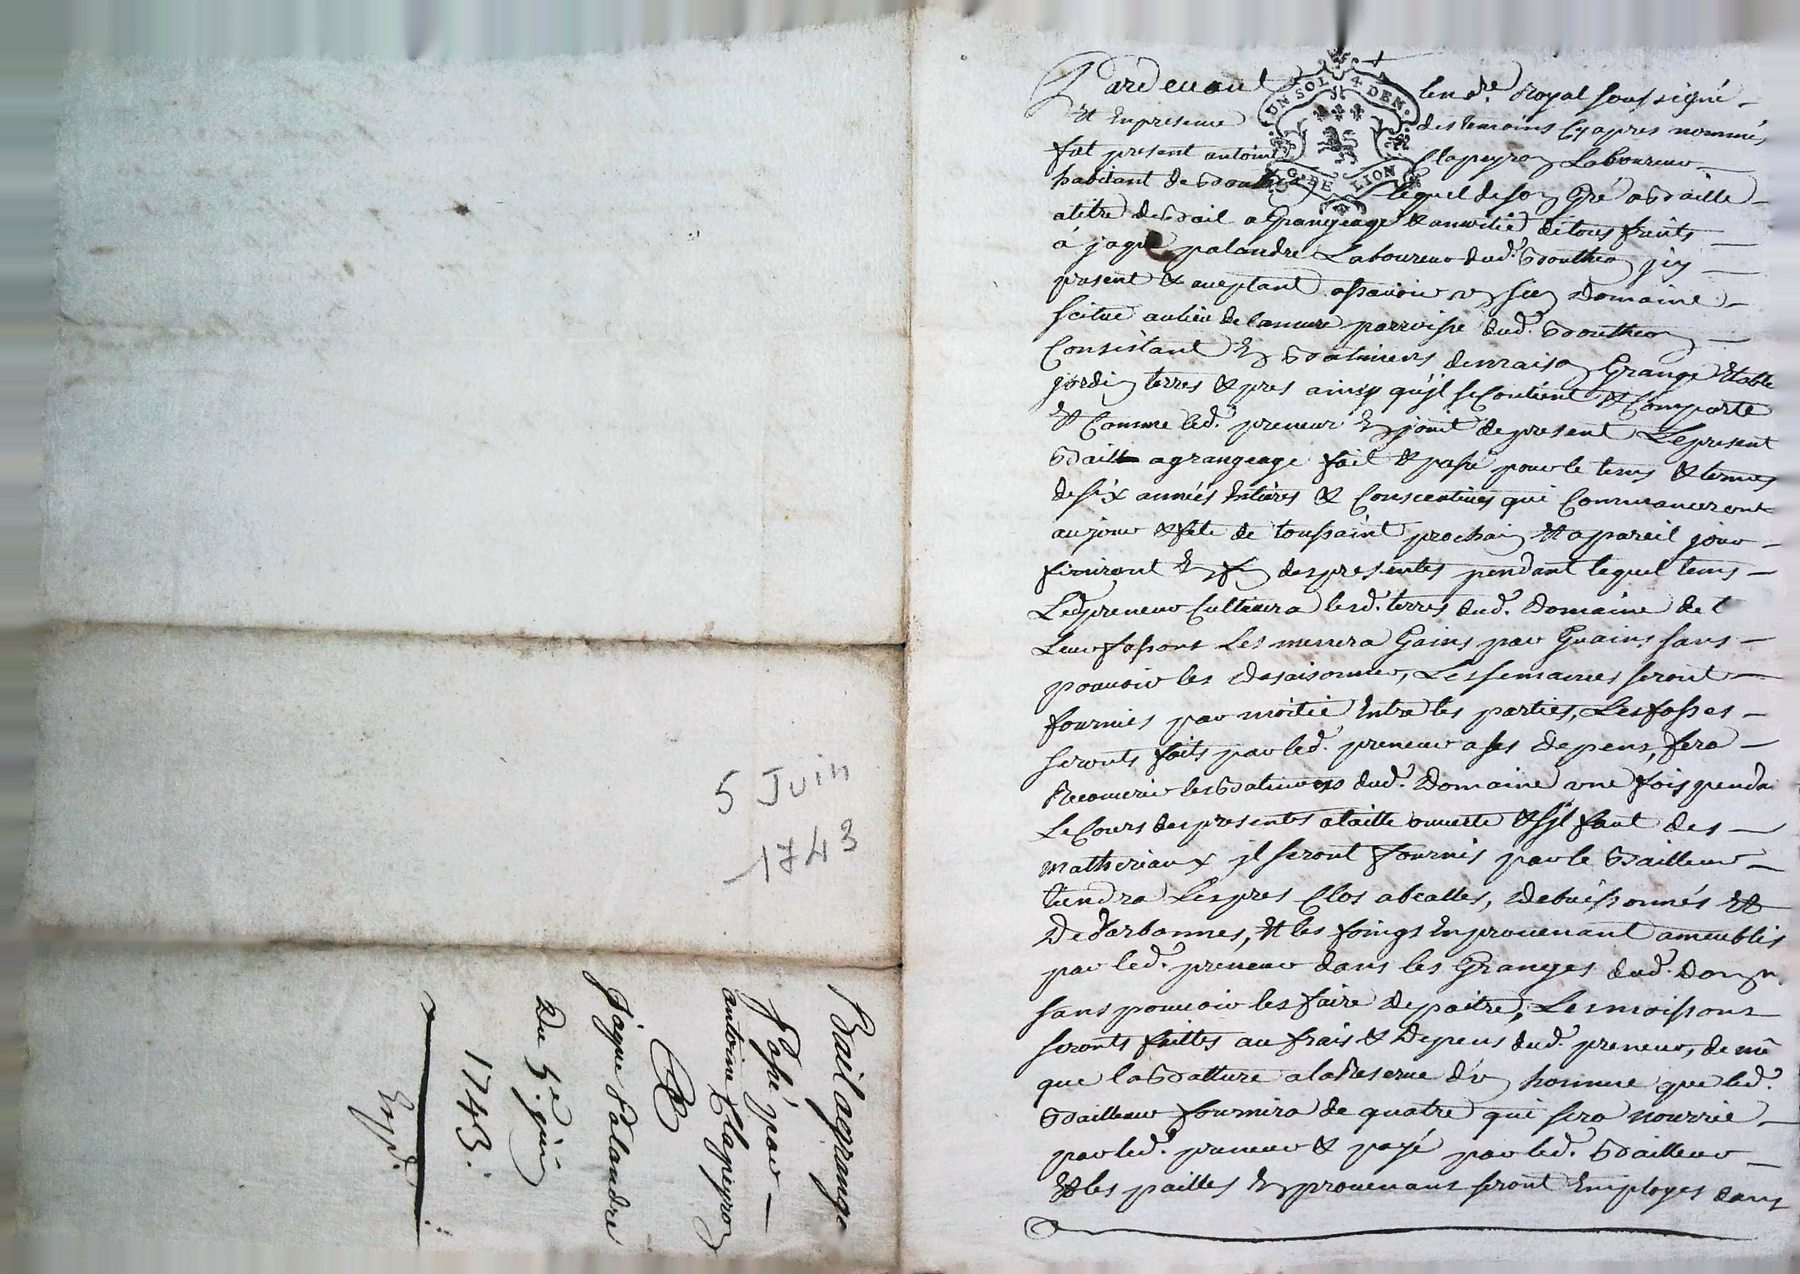 5 Juin
1743
Bail agrange
Passé par
antoine Clapeyron
A
Jaque Palandre
Du 5.e juin
1743.
Exp.d
UN SOL 4 DEN.
G. DE LION
Pardevant le no.re Royal soussigné
Et en presence des temoins cy apres nommés
fut present antoine Clapeyron Laboureur
habitant de Boutheon lequel de son gré a baillé
a titre de bail a Grangeage & a moitié de tous fruits
à jaque palandre Laboureur dud. Boutheon jcy
present & aceptant assavoir un sien Domaine
scitué au lieu de lamure parroisse dud. Boutheon
Consistant En batimens de maison Grange Etable
jardin terres & pres ainsy qu'jl se Contient & Comporte
& Comme led. preneur En jouit de present Le present
Bail a grangeage fait & passé pour le tems & termes
de six années Entieres & Consecutives qui Commanceront
au jour & fete de toussaint prochain Et a pareil jour
finiront En fin des presentes pendant lequel tems
Led. preneur Cultivera lesd. terres dud. Domaine de
Leur fassons Les menera Gains par Guains sans
pouvoir les desaisonner, Les semances seront
fournies par moitié Entre les parties, Les fosses
seronts faits par led. preneur a ses depens, fera
Recouvrir les Batimens dud. Domaine une fois penda
Le Cours des presentes a taille ouverte & s'jl faut des
matheriaux jl seront fournis par le Bailleur
tiendra Les pres Clos, debuissonnés Et
Dedarbonnes, Et les foings En provenant ameublis
par led. preneur dans les Granges dud. Dom.n
sans pouvoir les faire depaitre, Les moissons
seronts faittes au frais & Depens dud. preneur, de mê
que la Batture a la Reserve d'un homme que led.
Bailleur fournira de quatre qui sera nourrie
par led. preneur & payé par led. Bailleur
Et les pailles En provenant seront Employes dans